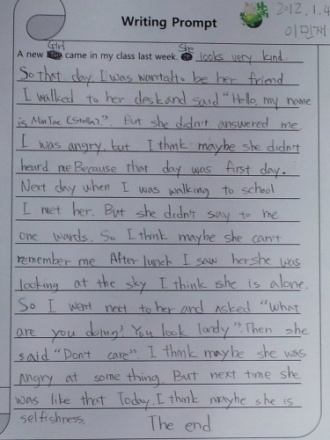 Writing Prompt
2012.1.4
이민재
Girl She
A new came in my class last week. looks very kind.
So that day I was wantato be her friend
I walked to her desk and said "Hello, my name
is MinJae (Stella)". But she didn't answered me
I was angry. but I think maybe she didn't
heard me Because that day was first day.
Next day when I was walking to school
I met her. But she didn't say to me
one words. So I think maybe she can't
remember me After lunch I saw her she was
looking at the sky I think she is alone.
So I went next to her and asked "What
are you doing? You look londy". Then she
said "Don't care" I think maybe she was
angry at some thing. But next time she
was like that Today. I think maybe she is
selfishness.
The end